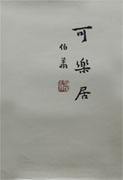 可樂居
伯